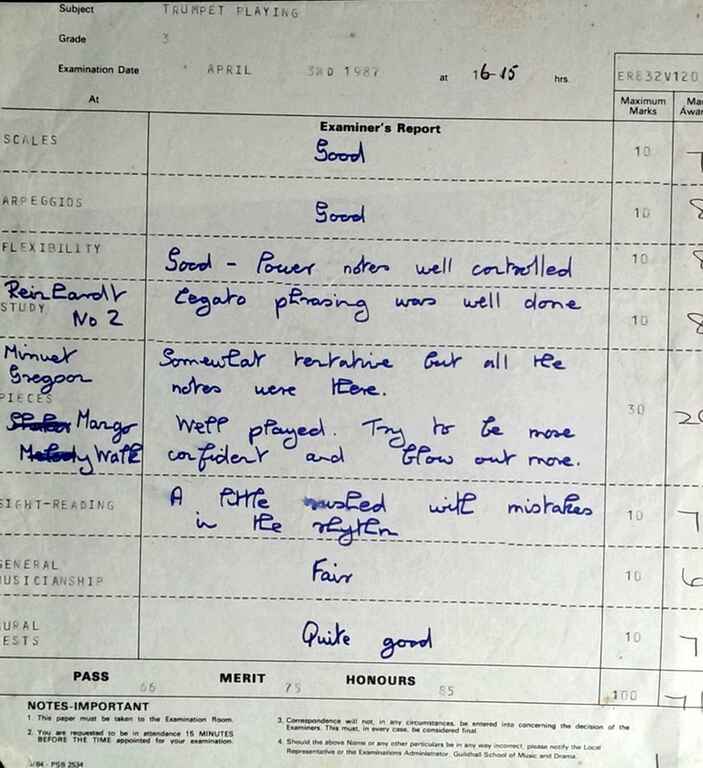 Subject TRUMPET PLAYING
Grade 3
Examination Date APRIL 3RD 1987 at 16-15 hrs.
ER832V120
At
Maximum Marks
Examiner's Report
SCALES Good 10 7
ARPEGGIOS Good 10 8
FLEXIBILITY Good - Power notes well controlled 10 8
Reinhardt
STUDY No 2 Legato phrasing was well done 10 8
Minuet Somewhat tentative but all the
Gregoor notes were there.
PIECES 30 20
Mango Well played. Try to be more
Melody Walk confident and blow out more.
SIGHT-READING A little rushed with mistakes 10 7
in the rhythm
GENERAL
MUSICIANSHIP Fair 10 6
AURAL
TESTS Quite good 10 7
PASS 66 MERIT 75 HONOURS 85 100 71
NOTES-IMPORTANT
1. This paper must be taken to the Examination Room.
2. You are requested to be in attendance 15 MINUTES
BEFORE THE TIME appointed for your examination.
3. Correspondence will not, in any circumstances, be entered into concerning the decision of the
Examiners. This must, in every case, be considered final.
4. Should the above Name or any other particulars be in any way incorrect, please notify the Local
Representative or the Examinations Administrator, Guildhall School of Music and Drama.
/84 - PSB 2534